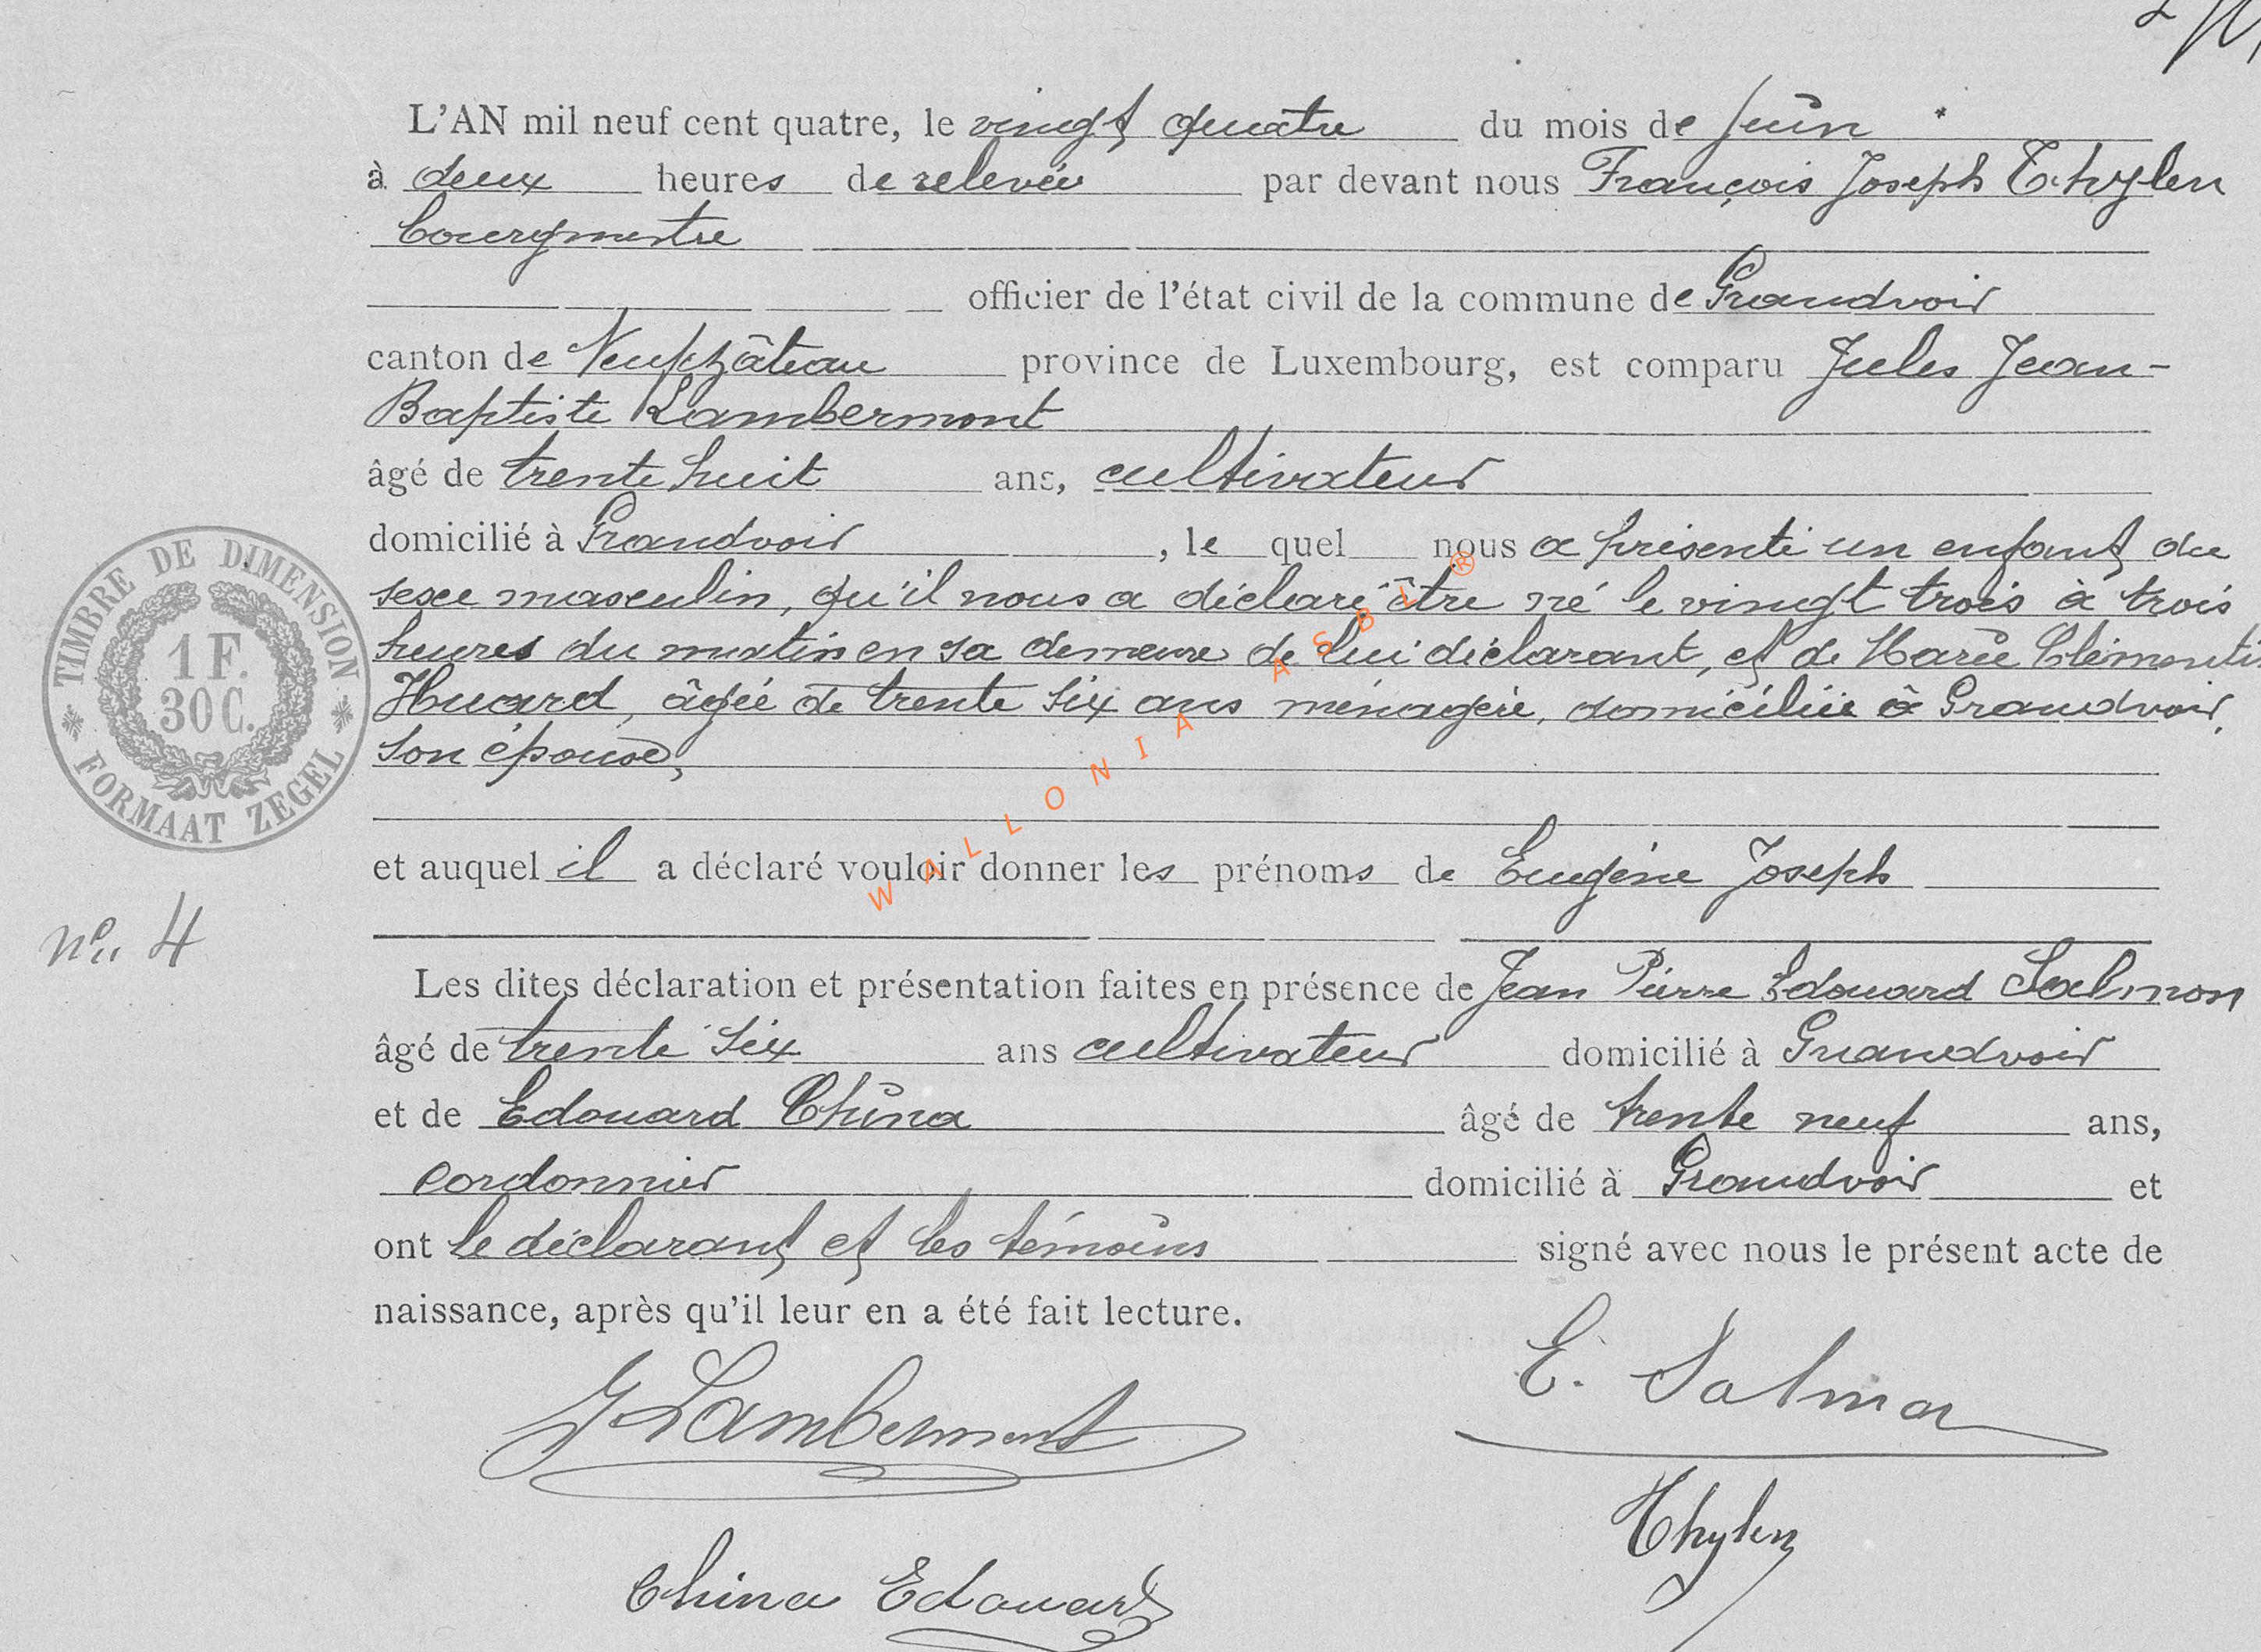 L'AN mil neuf cent quatre, le vingt quatre du mois de Juin
à deux heures de relevée par devant nous François Joseph Thylen
bourgmestre
officier de l'état civil de la commune de Grandvoir
canton de Neufchâteau province de Luxembourg, est comparu Jules Jean-
Baptiste Lambermont
âgé de trente huit ans, cultivateur
domicilié à Grandvoir, le quel nous a présenté un enfant du
sexe masculin, qu'il nous a déclaré être né le vingt trois à trois
heures du matin en sa demeure de lui déclarant, et de Marie Clémentine
Huard, âgée de trente six ans ménagère, domiciliée à Grandvoir,
son épouse,
et auquel il a déclaré vouloir donner les prénoms de Eugène Joseph
Les dites déclaration et présentation faites en présence de Jean Pierre Edouard Salmon
âgé de trente six ans cultivateur domicilié à Grandvoir
et de Edouard China âgé de trente neuf ans,
cordonnier domicilié à Grandvoir et
ont le déclarant et les témoins signé avec nous le présent acte de
naissance, après qu'il leur en a été fait lecture.
J Lambermont
E. Salmon
Thylen
China Edouard
TIMBRE DE DIMENSION
1 F.
30 C.
FORMAAT ZEGEL
No 4
WALLONIA ASBL ®